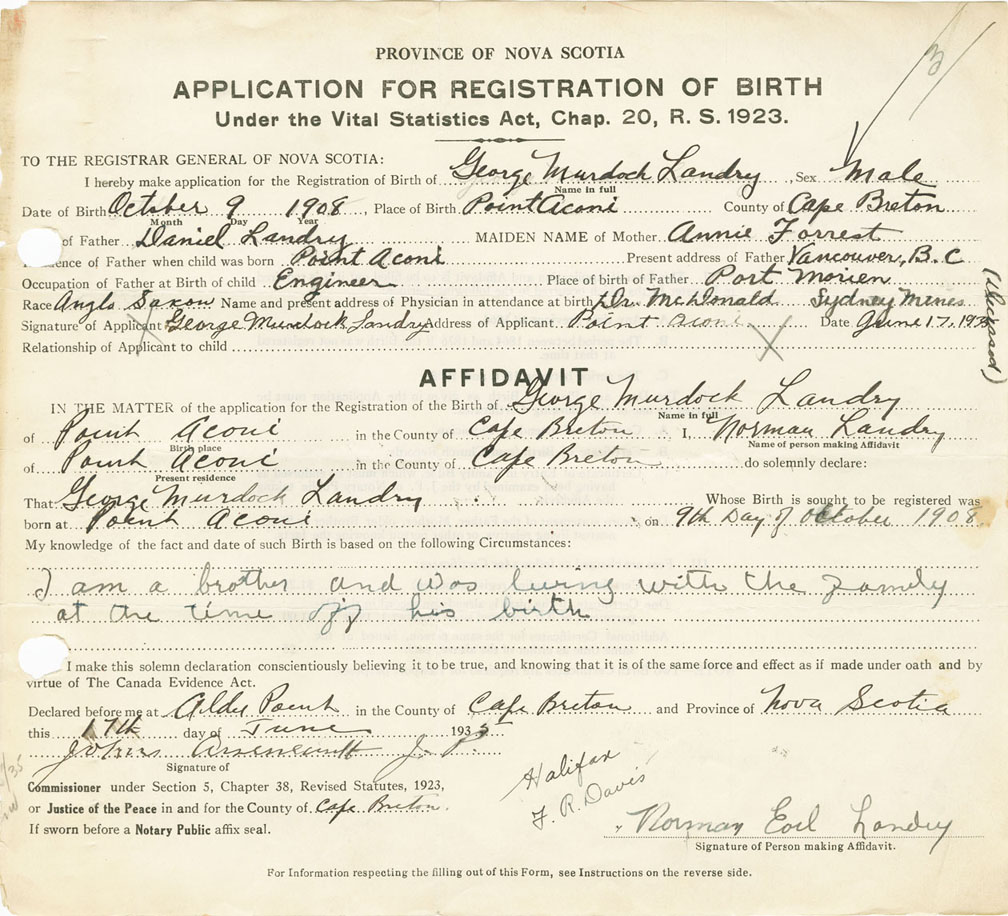 3
PROVINCE OF NOVA SCOTIA
APPLICATION FOR REGISTRATION OF BIRTH
Under the Vital Statistics Act, Chap. 20, R. S. 1923.
TO THE REGISTRAR GENERAL OF NOVA SCOTIA:
I hereby make application for the Registration of Birth of George Murdock Landry, Sex Male
Name in full
Date of Birth October 9 1908, Place of Birth Point Aconi County of Cape Breton
Month Day Year
of Father Daniel Landry MAIDEN NAME of Mother Annie Forrest
of Father when child was born Point Aconi Present address of Father Vancouver, B.C
Occupation of Father at Birth of child Engineer Place of birth of Father Port Morien
Race Anglo Saxon Name and present address of Physician in attendance at birth Dr. McDonald Sydney Mines (Deceased)
Signature of Applicant George Murdock Landry Address of Applicant Point Aconi Date June 17,
Relationship of Applicant to child
AFFIDAVIT
IN THE MATTER of the application for the Registration of the Birth of George Murdock Landry
Name in full
of Point Aconi in the County of Cape Breton I, Norman Landry
Birth place Name of person making Affidavit
of Point Aconi in the County of Cape Breton do solemnly declare:
Present residence
That George Murdock Landry Whose Birth is sought to be registered was
born at Point Aconi on 9th Day of October 1908.
My knowledge of the fact and date of such Birth is based on the following Circumstances:
I am a brother and was living with the family
at the time off his birth
I make this solemn declaration conscientiously believing it to be true, and knowing that it is of the same force and effect as if made under oath and by
virtue of The Canada Evidence Act.
Declared before me at Alder Point in the County of Cape Breton and Province of Nova Scotia
this 17th day of June 1935
Arseneault J. P.
Signature of
Commissioner under Section 5, Chapter 38, Revised Statutes, 1923,
or Justice of the Peace in and for the County of Cape Breton.
If sworn before a Notary Public affix seal.
Halifax
F. R. Davis
Norman Earl Landry
Signature of Person making Affidavit.
For Information respecting the filling out of this Form, see Instructions on the reverse side.